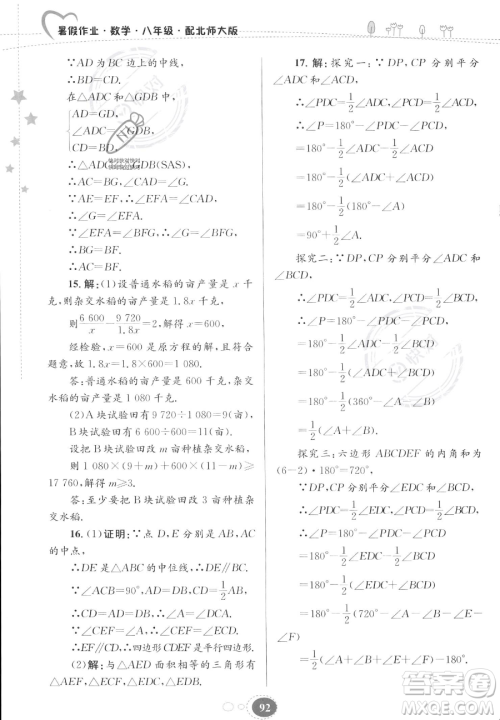 暑假作业·数学·八年级·配北师大版
∵AD为BC边上的中线，
∴BD=CD.
在△ADC和△GDB中，
AD=GD,
CD=BD,
∴△ADC≌△GDB(SAS).
∴AC=BG,∠CAD=∠G.
∵AE=EF,
∴∠G=∠EFA.
∵∠EFA=∠GFB,∴∠GFB=∠G.
∴BG=BF.
∴AC=BF.
15.解:(1)设普通水稻的亩产量是x千
克,则杂交水稻的亩产量是1.8x千克.
则6 600/x-9 720/1.8x=2,解得x=600,
经检验,x=600是原方程的解,且符合
题意,故1.8×600=1 080.
答:普通水稻的亩产量是600千克,杂交
水稻的亩产量是1 080千克.
(2)A块试验田有9 720÷1 080=9(亩),
B块试验田有6 600÷600=11(亩).
设把B块试验田改m亩种植杂交水稻,
则1 080×(9+m)+600×(11-m)≥
17 760,解得m≥3.
答:至少要把B块试验田改3亩种植杂
交水稻.
16.(1)证明:∵点D,E分别是AB,AC
的中点,
∴DE是△ABC的中位线,∴DE∥BC.
∵∠ACB=90°,∴CE=1/2AB=AE.
∴∠A=∠ECA.
∵∠CDF=∠A,∴∠CDF=∠ECA.
∴DF∥CE.∴四边形CEDF是平行四边形.
(2)解:与△AED面积相等的三角形有
△CED,△EDF,△CEF,△CDF.
17.解:探究一:∵DP,CP分别平分
∠ADC和∠ACD,
∴∠PDC=1/2∠ADC,∠PCD=1/2∠ACD.
∴∠P=180°-∠PDC-∠PCD
=180°-1/2∠ADC-1/2∠ACD
=180°-1/2(∠ADC+∠ACD)
=180°-1/2(180°-∠A)
=90°+1/2∠A.
探究二:∵DP,CP分别平分∠ADC和
∠BCD,
∴∠PDC=1/2∠ADC,∠PCD=1/2∠BCD.
∴∠P=180°-∠PDC-∠PCD
=180°-1/2∠ADC-1/2∠BCD
=180°-1/2(∠ADC+∠BCD)
=180°-1/2(360°-∠A-∠B)
=1/2(∠A+∠B).
探究三:六边形ABCDEF的内角和为
(6-2)·180°=720°,
∵DP,CP分别平分∠EDC和∠BCD,
∴∠PDC=1/2∠EDC,∠PCD=1/2∠BCD.
∴∠P=180°-∠PDC-∠PCD
=180°-1/2∠EDC-1/2∠BCD
=180°-1/2(∠EDC+∠BCD)
=180°-1/2(720°-∠A-∠B-∠E-
∠F)
=1/2(∠A+∠B+∠E+∠F)-180°,
92